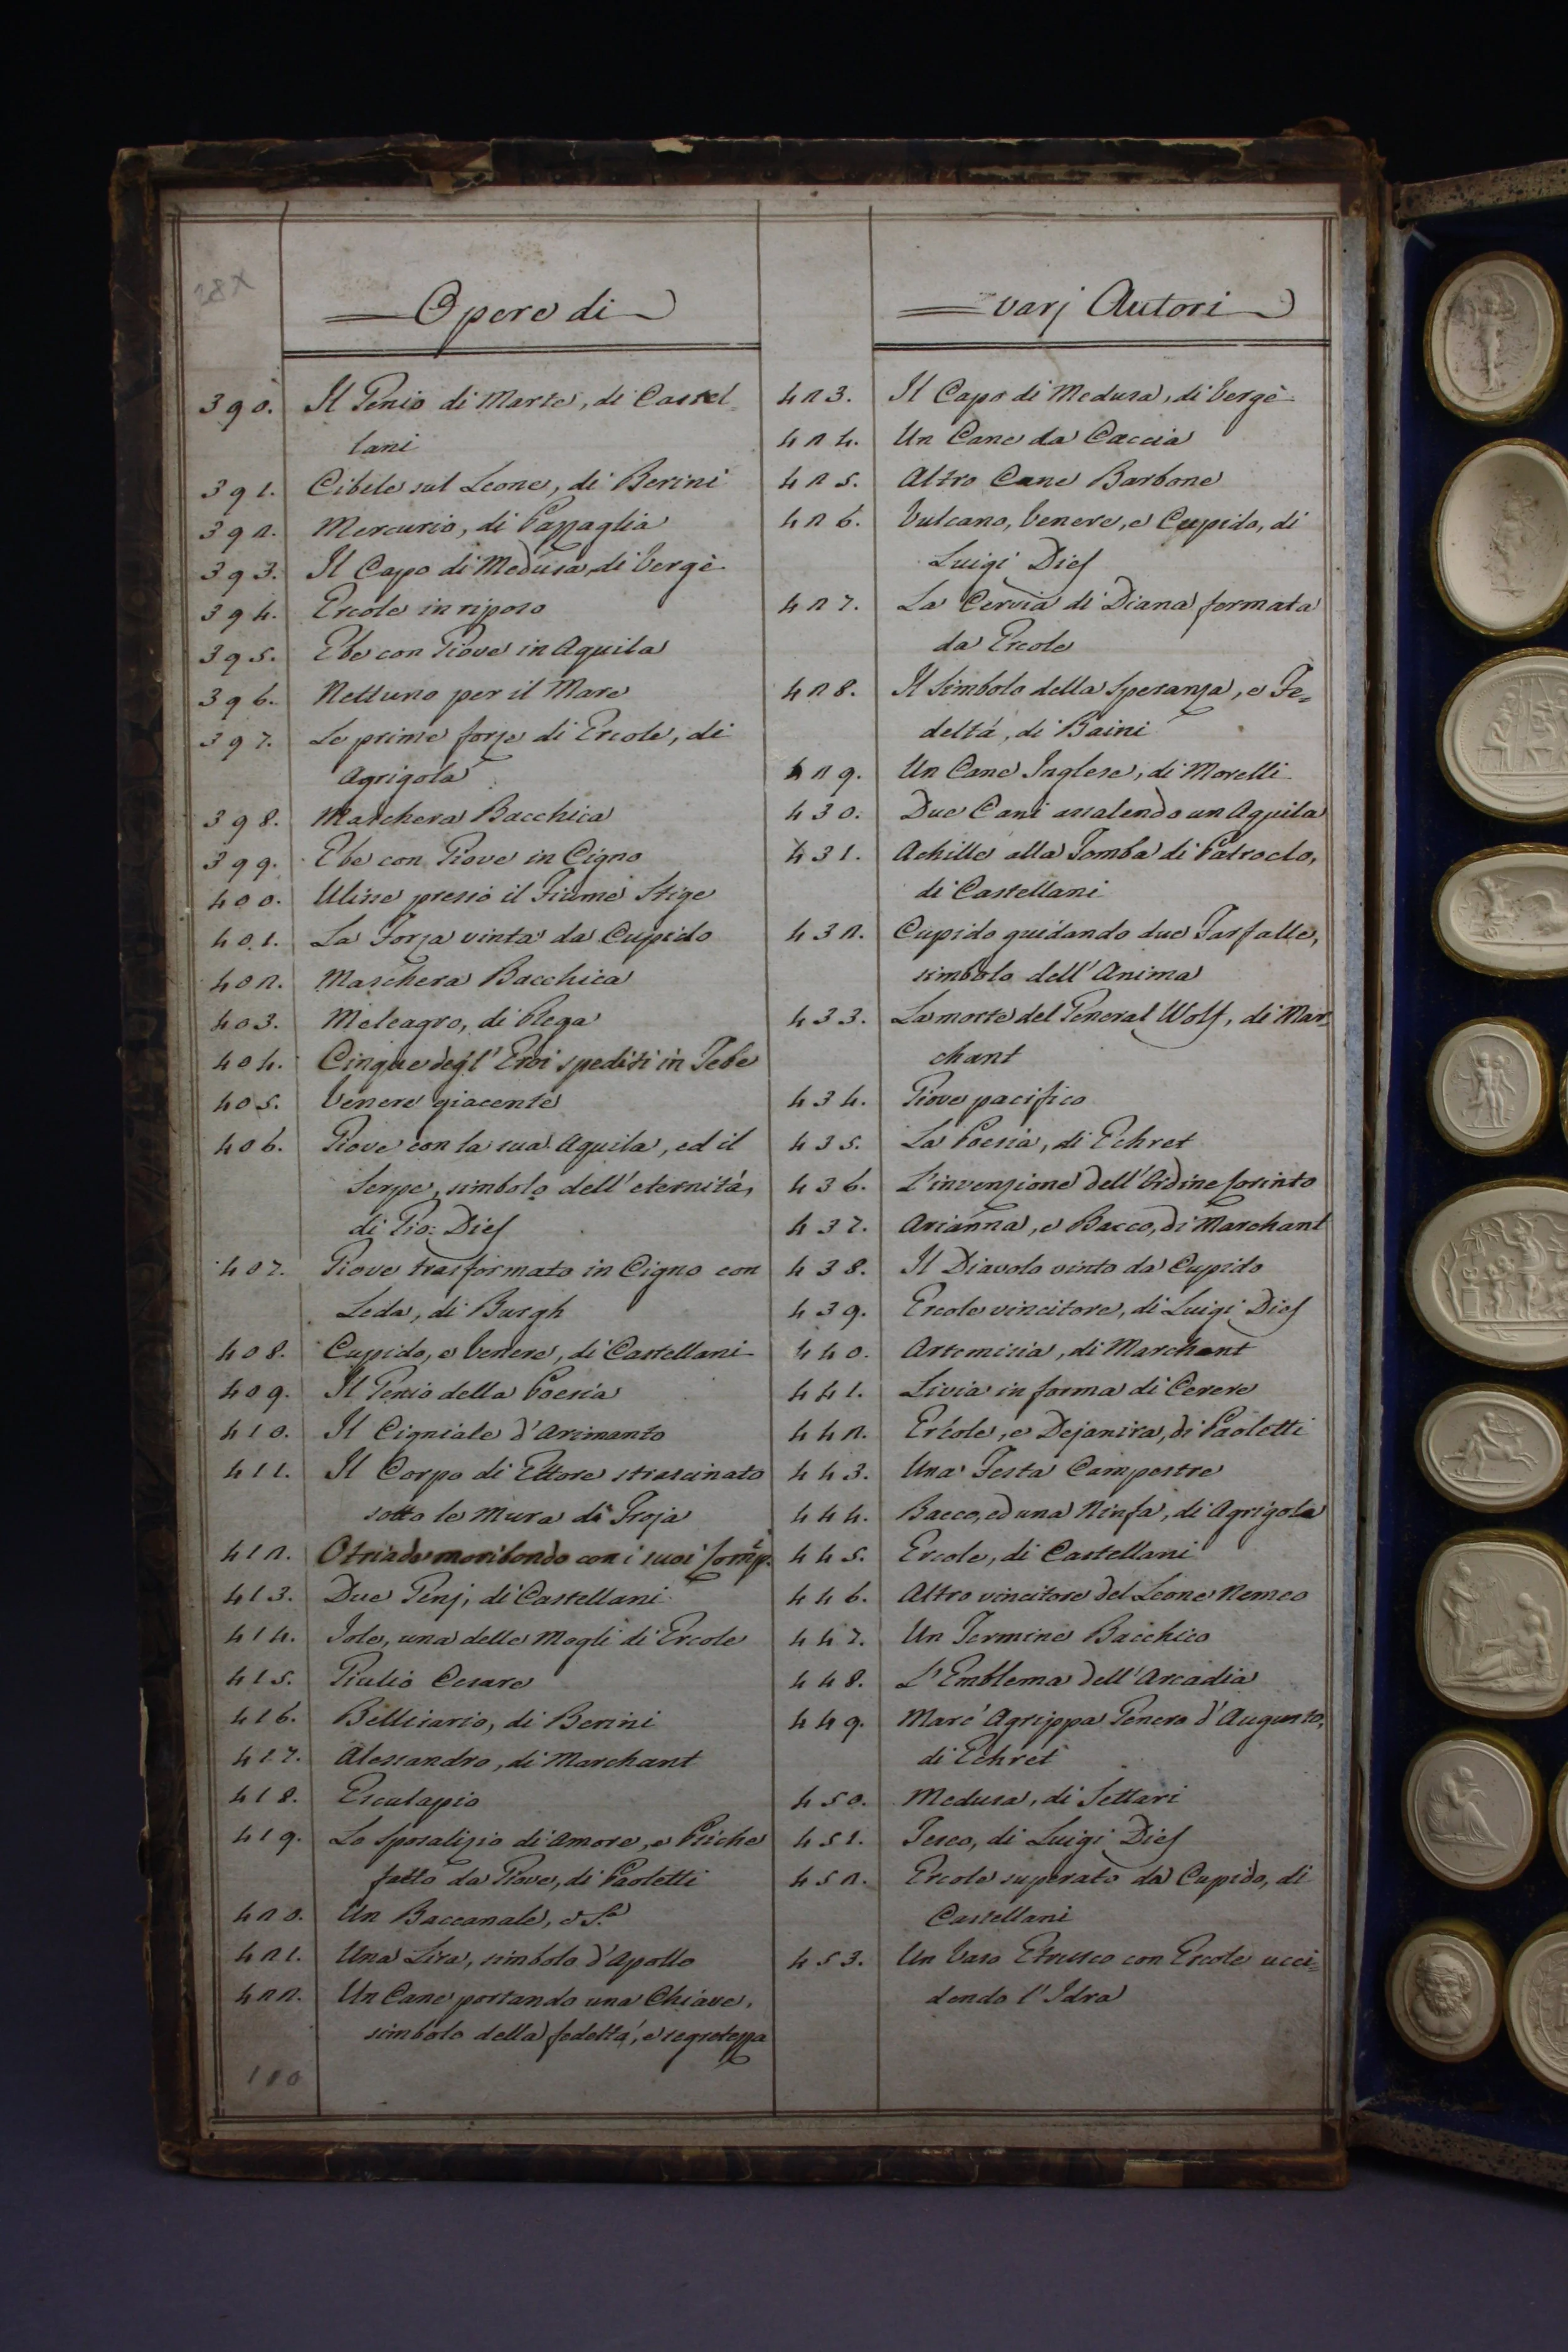 28X
Opere di
varj Autori
390. Il Genio di Marte, di Castel=
lani
391. Cibele sul Leone, di Berini
392. Mercurio, di Pazzaglia
393. Il Capo di Medusa, di Vergè
394. Ercole in riposo
395. Ebe con Giove in Aquila
396. Nettuno per il Mare
397. Le prime forze di Ercole, di
Agrigola
398. Maschera Bacchica
399. Ebe con Giove in Cigno
400. Ulisse presso il Fiume Stige
401. La Forza vinta da Cupido
402. Maschera Bacchica
403. Meleagro, di Plega
404. Cinque degl' Eroi spediti in Tebe
405. Venere giacente
406. Giove con la sua Aquila, ed il
Serpe, simbolo dell' eternitá,
di Gio: Dies
407. Giove trasformato in Cigno con
Leda, di Burgh
408. Cupido, e Venere, di Castellani
409. Il Genio della Poesia
410. Il Cigniale d'Arimanto
411. Il Corpo di Ettore strascinato
sotto le Mura di Troja
412. Otriade moribondo con i suoi Comp.
413. Due Genj, di Castellani
414. Jole, una delle Mogli di Ercole
415. Giulio Cesare
416. Bellisario, di Berini
417. Alessandro, di Marchant
418. Esculapio
419. Lo Sposalizio di Amore, e Psiche
fatto da Giove, di Paoletti
420. Un Baccanale, d S.o
421. Una Lira, simbolo d'Apollo
422. Un Cane portando una Chiave,
simbolo della fedeltá, e segretezza
100
423. Il Capo di Medusa, di Vergè
424. Un Cane da Caccia
425. Altro Cane Barbone
426. Vulcano, Venere, e Cupido, di
Luigi Dies
427. La Cervia di Diana fermata
da Ercole
428. Il Simbolo della Speranza, e Fe=
deltá, di Baini
429. Un Cane Inglese, di Morelli
430. Due Cani assalendo un Aquila
431. Achille alla Tomba di Patroclo,
di Castellani
432. Cupido guidando due Farfalle,
simbolo dell' Anima
433. La morte del General Wolf, di Mar=
chant
434. Giove pacifico
435. La Poesia, di Echret
436. L'invenzione dell' Ordine Corinto
437. Arianna, e Bacco, di Marchant
438. Il Diavolo vinto da Cupido
439. Ercole vincitore, di Luigi Dies
440. Artemisia, di Marchant
441. Livia in forma di Cerere
442. Ercole, e Dejanira, di Paoletti
443. Una Festa Campestre
444. Bacco, ed una Ninfa, di Agrigola
445. Ercole, di Castellani
446. Altro vincitore del Leone Nemeo
447. Un Termine Bacchico
448. L'Emblema dell' Arcadia
449. Marc' Agrippa Genero d'Augusto,
di Echret
450. Medusa, di Settari
451. Teseo, di Luigi Dies
452. Ercole superato da Cupido, di
Castellani
453. Un Vaso Etrusco con Ercole ucci=
dendo l'Idra